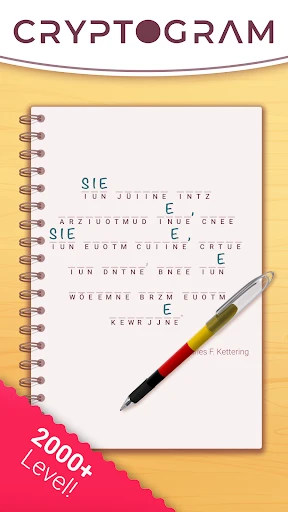 CRYPTOGRAM
SIE
IUN JÜIINE INTZ
E ,
ARZIUOTMUD INUE CNEE
SIE E ,
IUN EUOTM CUIINE CRTUE
IUN DNTNE, BNEE IUN
WOEEMNE BRZM EUOTM
E
KEWRJJNE
les F. Kettering
2000+
Level!